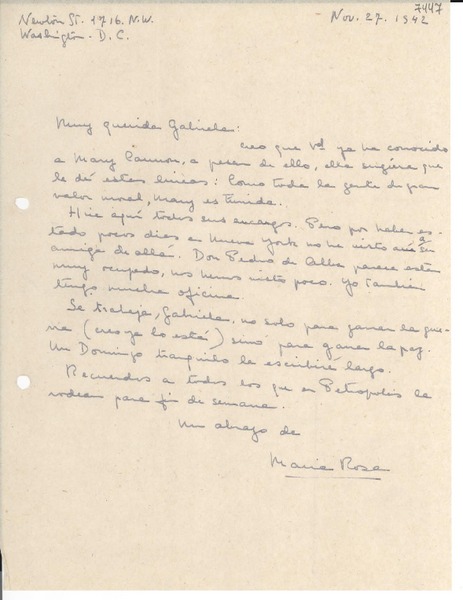 7447
Newton St. 1716. N.W.
Nov. 27. 1942
Washington. D.C.
Muy querida Gabriela:
creo que Vd ya ha conocido
a Mary Cannon, a pesar de ello, ella sugiere que
le dé estas líneas: Como toda la gente de gran
valor moral, Mary es tímida.
Hice aquí todos sus encargos. Pero por haber es-
tado pocos días en Nueva York no he visto aún a su
amiga de allá. Don Pedro de Alba parece estar
muy ocupado, nos hemos visto poco. Yo también
tengo mucha oficina.
Se trabaja, Gabriela, no solo para ganar la gue-
rra (creo ya lo está) sino para ganar la paz.
Un Domingo tranquilo le escribiré largo.
Recuerdos a todos los que en Petropolis la
rodean para fin de semana.
Un abrazo de
Maria Rosa